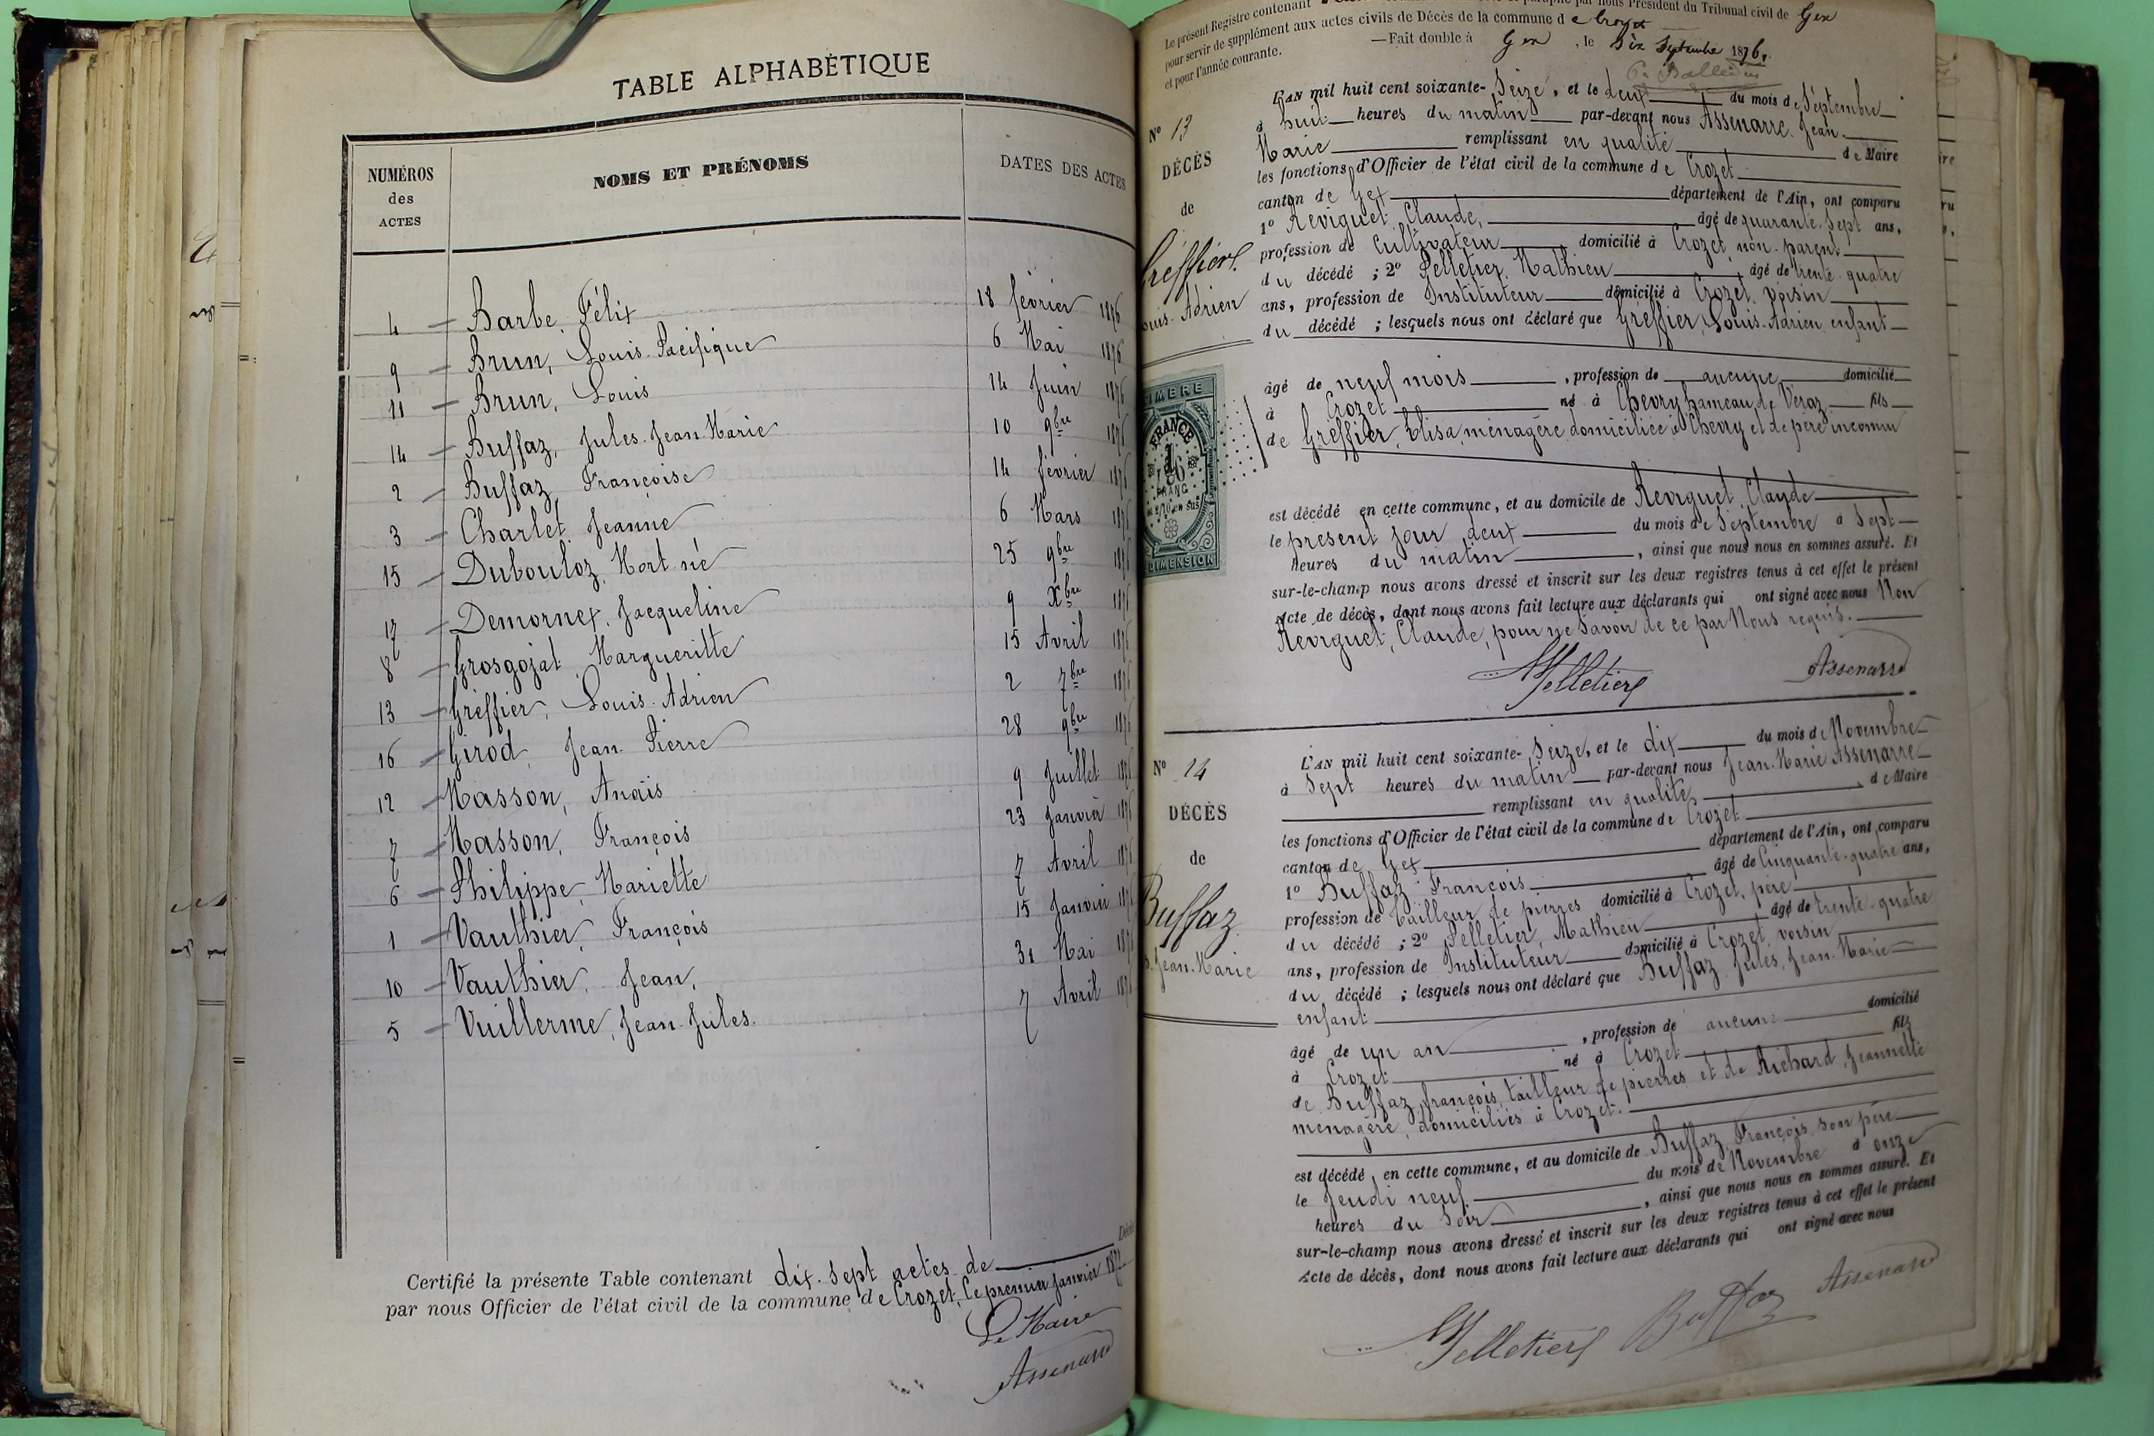 TABLE ALPHABÉTIQUE
NUMÉROS des ACTES
NOMS ET PRÉNOMS
DATES DES ACTES
4 Barbe, Félix 18 février 1876
9 Brun, Louis-Pacifique 6 Mai 1876
11 Brun, Louis 14 Juin 1876
14 Buffaz, Jules-Jean-Marie 10 9bre 1876
2 Buffaz, Françoise 14 février 1876
3 Charlet, Jeanne 6 Mars 1876
15 Dubouloz, Mort né 25 9bre 1876
17 Demornex, Jacqueline 9 Xbre 1876
8 Grosgojat, Margueritte 15 Avril 1876
13 Gréffier, Louis-Adrien 2 7bre 1876
16 Girod, Jean-Pierre 28 9bre 1876
12 Masson, Anaïs 9 Juillet 1876
7 Masson, François 23 Janvier 1876
6 Philippe, Mariette 7 Avril 1876
1 Vauthier, François 15 Janvier 1876
10 Vauthier, Jean, 31 Mai 1876
5 Vuillerme, Jean-Jules. 7 Avril 1876
Certifié la présente Table contenant dix-sept actes de
par nous Officier de l'état civil de la commune de Crozet, le premier Janvier 1877
Le Maire
Assenarre
Le présent Registre contenant par nous Président du Tribunal civil de Gex
pour servir de supplément aux actes civils de Décès de la commune de Crozet
et pour l'année courante.
—Fait double à Gex, le Six Septembre 1876.
N° 13
DÉCÈS
de
Gréffier
Louis-Adrien
L'AN mil huit cent soixante-Seize, et le deux du mois de Septembre
à huit heures du matin par-devant nous Assenarre Jean-
Marie remplissant en qualité de Maire
les fonctions d'Officier de l'état civil de la commune de Crozet
canton de Gex département de l'Ain, ont comparu
1° Reviguet, Claude, âgé de quarante-Sept ans,
profession de Cultivateur domicilié à Crozet, non-parent
du décédé ; 2° Pelletier, Mathieu âgé de trente-quatre
ans, profession de Instituteur domicilié à Crozet, voisin
du décédé ; lesquels nous ont déclaré que Gréffier, Louis-Adrien, enfant
âgé de neuf mois, profession de aucune domicilié
à Crozet né à Chevry hameau de Véraz fils
de Gréffier, Élisa, ménagère domiciliée à Chevry et de père inconnu
est décédé en cette commune, et au domicile de Reviguet, Claude
le présent jour deux du mois de Septembre à Sept
heures du matin, ainsi que nous nous en sommes assuré. Et
sur-le-champ nous avons dressé et inscrit sur les deux registres tenus à cet effet le présent
Acte de décès, dont nous avons fait lecture aux déclarants qui ont signé avec nous Non
Reviguet, Claude, pour ne Savoir de ce par Nous requis.
MPelletier
Assenarre
TIMBRE
FRANCE
1
FRANC
DIMENSION
N° 14
DÉCÈS
de
Buffaz
Jean-Marie
L'AN mil huit cent soixante-Seize, et le dix du mois de Novembre
à Sept heures du matin par-devant nous Jean-Marie Assenarre
remplissant en qualité de Maire
les fonctions d'Officier de l'état civil de la commune de Crozet
canton de Gex département de l'Ain, ont comparu
1° Buffaz François âgé de Cinquante-quatre ans,
profession de tailleur de pierres domicilié à Crozet, père
du décédé ; 2° Pelletier, Mathieu âgé de trente-quatre
ans, profession de Instituteur domicilié à Crozet, voisin
du décédé ; lesquels nous ont déclaré que Buffaz, Jules, Jean-Marie
enfant
âgé de un an, profession de aucune domicilié
à Crozet né à Crozet fils
de Buffaz, françois, tailleur de pierres et de Richard, Jeannette
ménagère, domiciliés à Crozet.
est décédé en cette commune, et au domicile de Buffaz, François, son père
le Jeudi neuf du mois de Novembre à onze
heures du Soir, ainsi que nous nous en sommes assuré. Et
sur-le-champ nous avons dressé et inscrit sur les deux registres tenus à cet effet le présent
Acte de décès, dont nous avons fait lecture aux déclarants qui ont signé avec nous
MPelletier Buffaz Assenarre